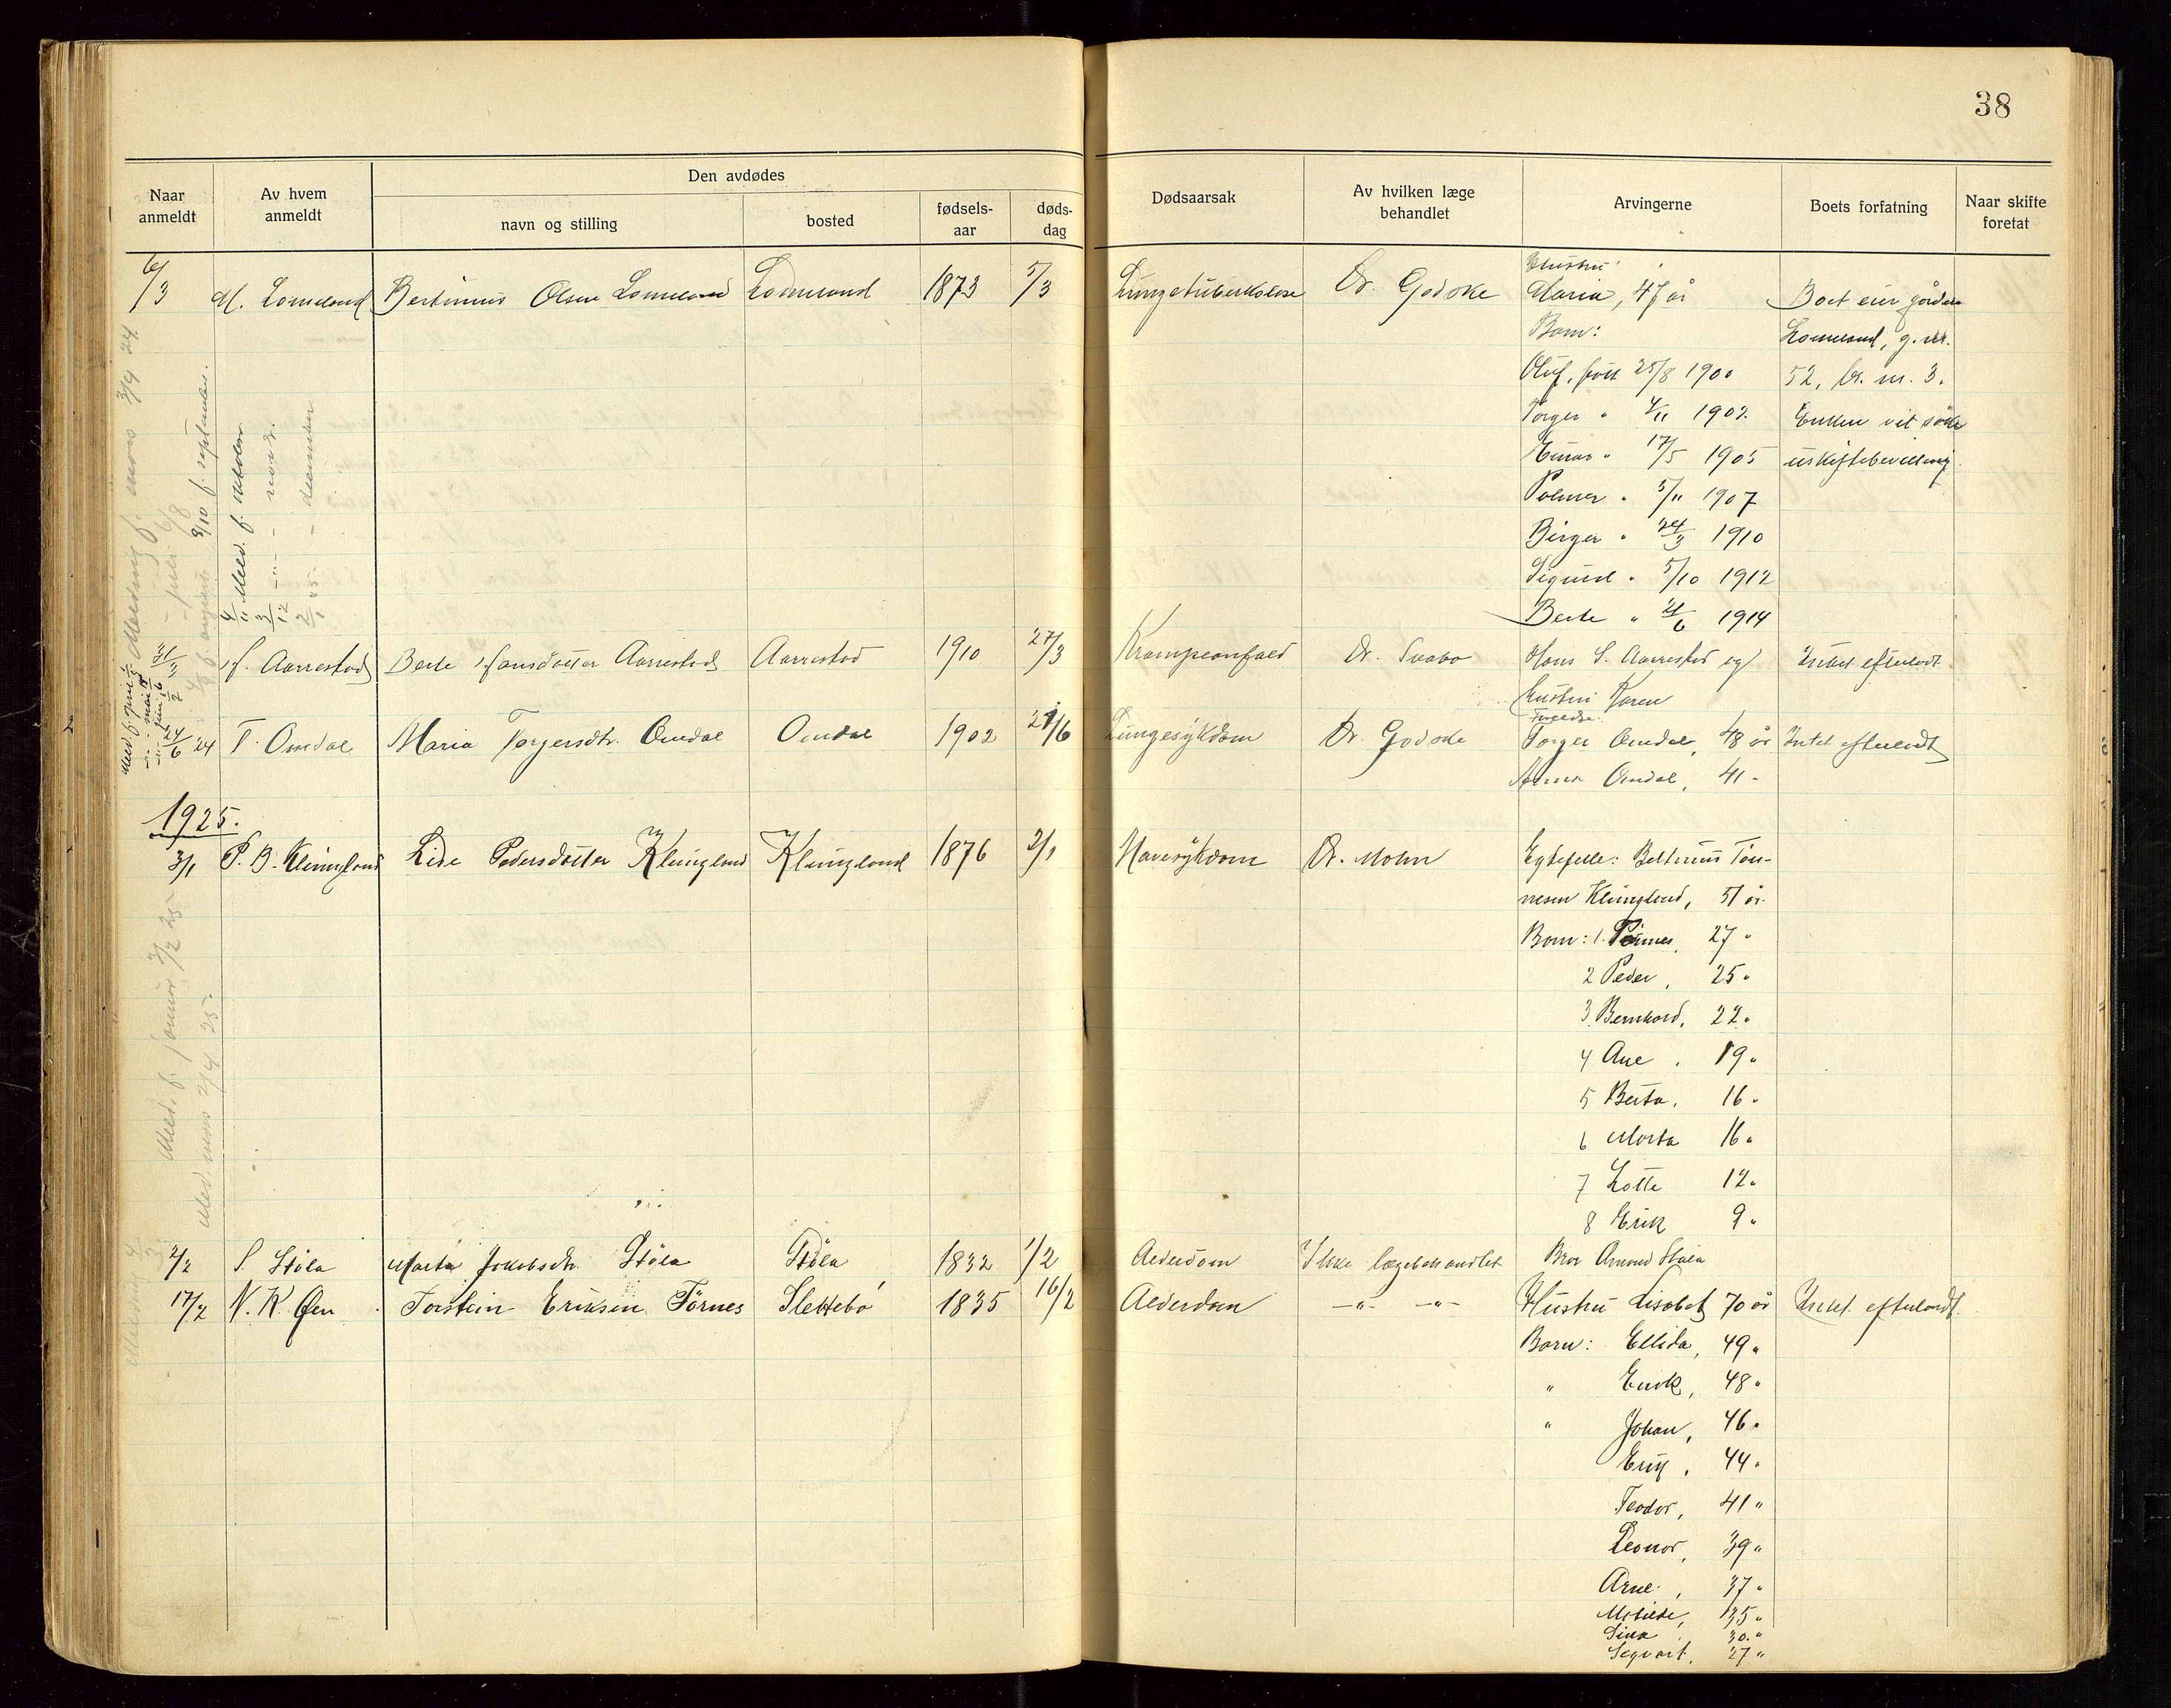 38
Naar anmeldt
Av hvem anmeldt
Den avdødes
navn og stilling
bosted
fødsels-aar
døds-dag
Dødsaarsak
Av hvilken læge behandlet
Arvingerne
Boets forfatning
Naar skifte foretat
6/3 M. Lomeland Bertinius Olsen Lomeland Lomeland 1873 5/3 Lungetuberkolose Dr. Godske Hustru
Maria, 47 år Boet eier gården
Barn: Lomeland, g. nr.
Oluf, født 25/8 1900 52, br. nr. 3.
Torger " 4/11 1902 Enken vil søke
Einar " 17/5 1905 uskiftebevilling.
Palmer " 5/11 1907
Birger " 24/3 1910
Sigurd " 5/10 1912
Berte " 21/6 1914
Melding f. mars 3/4 24.
- juli 6/8
3/10 f. september.
4/11 Meld. f. oktober
3/12 -"- - novbr.
2/1 25 - desember
31/3 H. Aarrestad Berte Hansdotter Aarrestad Aarrestad 1910 27/3 Krampeanfald Dr. Svabo Hans S. Aarrestad og Intet efterladt
hustru Karen
Foreldre:
24/6 24 T. Omdal Maria Torgersdtr. Omdal Omdal 1902 21/6 Lungesykdom Dr. Godske Torger Omdal, 48 år Intet efterladt
Anna Omdal, 41 "
1925.
3/1 P. B. Klungland Lise Pedersdotter Klungland Klungland 1876 2/1 Mavesykdom Dr. Mohn Egtefelle: Beltinius Tøn-
nesen Klungland, 51 år.
Barn: 1. Tønnes, 27 "
2 Peder, 25 "
3. Bernhard, 22 "
4 Ane, 19 "
5 Berta, 16 "
6 Marta 16 "
7 Lotte 12 "
8 Erik 9 "
Meld. f. januar 3/2 25
Meld. mars 2/4 25
2/2 S. Støla Marta Jakobsdtr. Støla Støla 1832 1/2 Alderdom Ikke lægebehandlet Bror Amund Støla
17/2 N. K. Øen Torstein Eriksen Tørnes Slettebø 1835 16/2 Alderdom -"- -"- Hustru Lisabet 70 år Intet efterladt.
Barn: Ellida, 49 "
" Enok, 48 "
" Johan, 46 "
Erik, 44 "
Teodor, 41 "
Leonor, 39 "
Arne, 37 "
Matilde, 35 "
Sina 30 "
Segvart, 27 "